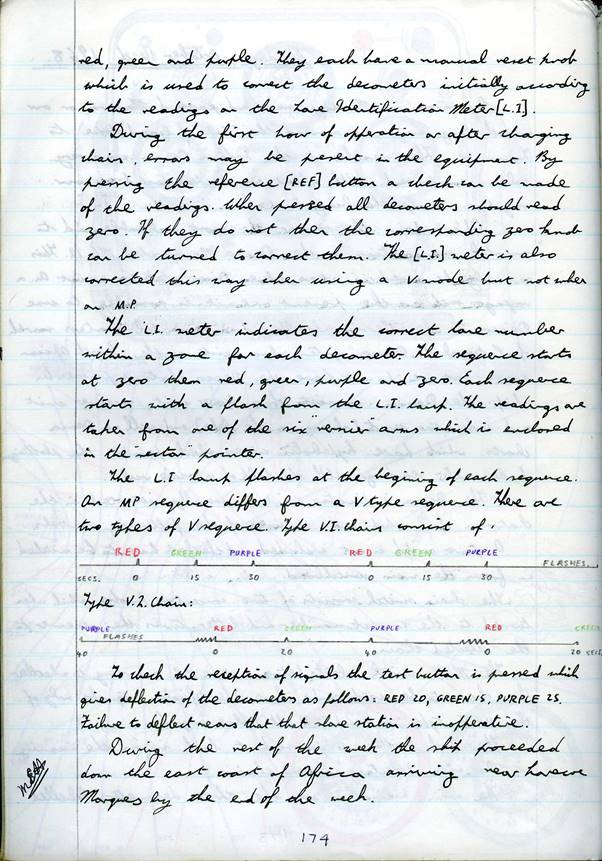 red, green and purple. They each have a manual reset knob
which is used to correct the decometers initially according
to the readings on the Lane Identification Meter [L.I].
During the first hour of operation or after changing
chains, errors may be present in the equipment. By
pressing the reference [REF] button a check can be made
of the readings. When pressed all decometers should read
zero. If they do not then the corresponding zero knob
can be turned to correct them. The [L.I.] meter is also
corrected this way when using a V mode but not when
on M.P.
The L.I. meter indicates the correct lane number
within a zone for each decometer. The sequence starts
at zero then red, green, purple and zero. Each sequence
starts with a flash from the L.I. lamp. The readings are
taken from one of the six "vernier" arms which is enclosed
in the "sector" pointer.
The L.I lamp flashes at the begining of each sequence.
An MP sequence differs from a V type sequence. There are
two types of V sequence. Type V.1. chains consist of:
RED GREEN PURPLE RED GREEN PURPLE
FLASHES.
SECS. 0 15 30 0 15 30
Type V.2. Chain:
PURPLE RED GREEN PURPLE RED GREEN
FLASHES
40 0 20 40 0 20 SECS
To check the reception of signals the test button is pressed which
gives deflection of the decometers as follows: RED 20, GREEN 15, PURPLE 25.
Failure to deflect means that that slave station is inopperative.
During the rest of the week the ship proceeded
down the east coast of Africa arriving near Lorenco
Marques by the end of the week.
174